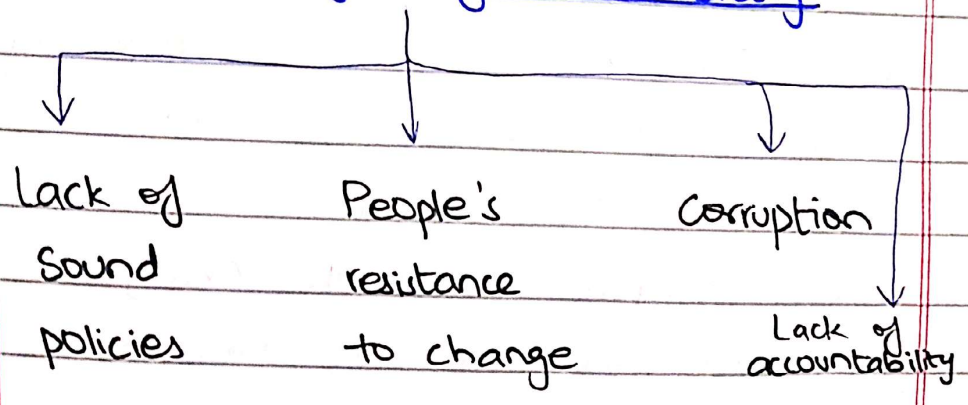 Lack of
Sound
policies
People's
resistance
to change
Corruption
Lack of
accountability